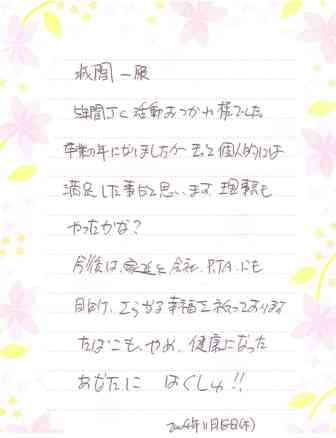 年間JC活動おつかれ様でした
卒業の年になりましたが きっと個人的には
満足した事だと思います 理事長も
やったかな?
今後は、家庭と会社、P.T.A.にも
目向け、さらなる幸福を祈っております
たばこも、やめ、健康になった
あなたに はくしゅ!!